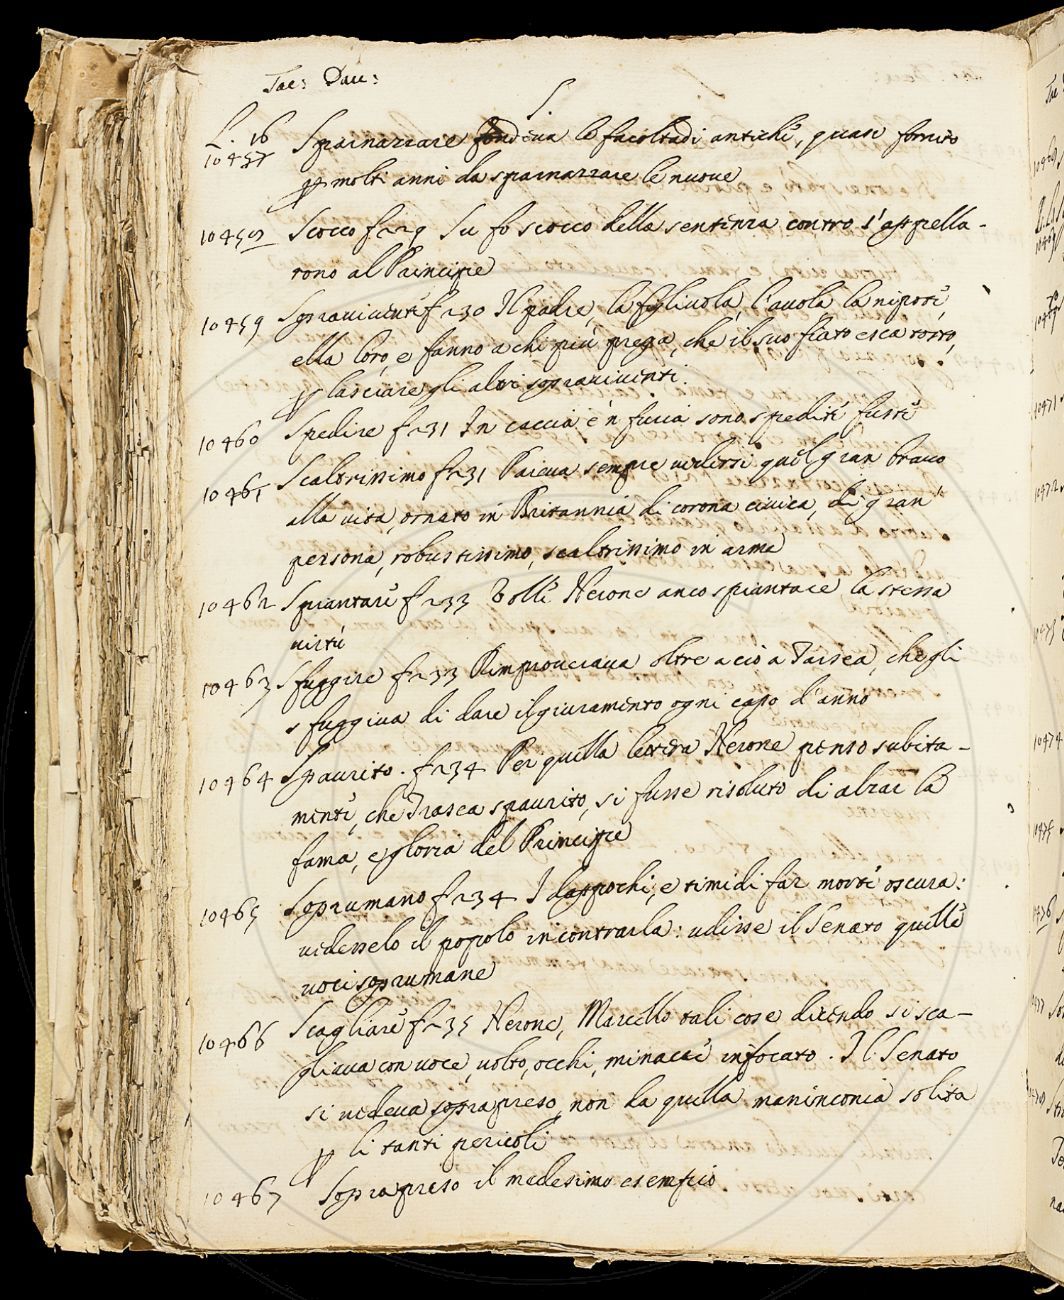 Tac: Dau:
S.
L. 16
10457 Sparnazzare fondeua le facoltadi antiche, quasi fornito
p molti anni da sparnazzare le nuoue
10458 Scocco f 229 Su lo scocco della sentenza contro s'appella-
rono al Principe
10459 Soprauiuente f 230 Il padre, la figliuola, l'auola, la nipote,
ella loro, e fanno a chi più prega, che il suo fiato esca tosto,
p lasciare gli altri soprauiuenti.
10460 Spedire f 231 In caccia e 'n furia sono spediti fusti
10461 Scaltrissimo f 231 Paieua sempre uedersi quel gran brauo
alla uita, ornato in Britannia di corona ciuica, di gran
persona, robustissimo, scaltrissimo in arme
10462 Spiantare f 233 Volle Nerone anco spiantare la stessa
uirtù
10463 Sfuggire f 233 Rimprouciaua oltre a ciò a Trasea, che gli
sfuggiua di dare il giuramento ogni capo d'anno
10464 Spaurito. f 234 Per quella lettera Nerone penso subita-
mente, che Trasea spaurito, si fusse risoluto di alzar la
fama, e gloria del Principe
10465 Soprumano f 234 I dappochi, e timidi far morte oscura:
uedesselo il popolo incontrarla: udisse il Senato quelle
uoci soprumane
10466 Scagliare f 235 Nerone, Marcello tali cose dicendo si sca-
gliaua con uoce, uolto, occhi, minacce infocato. Il Senato
si uedeua soprapreso, non da quella maninconia solita
p li tanti pericoli
10467 Soprapreso il medesimo esempio